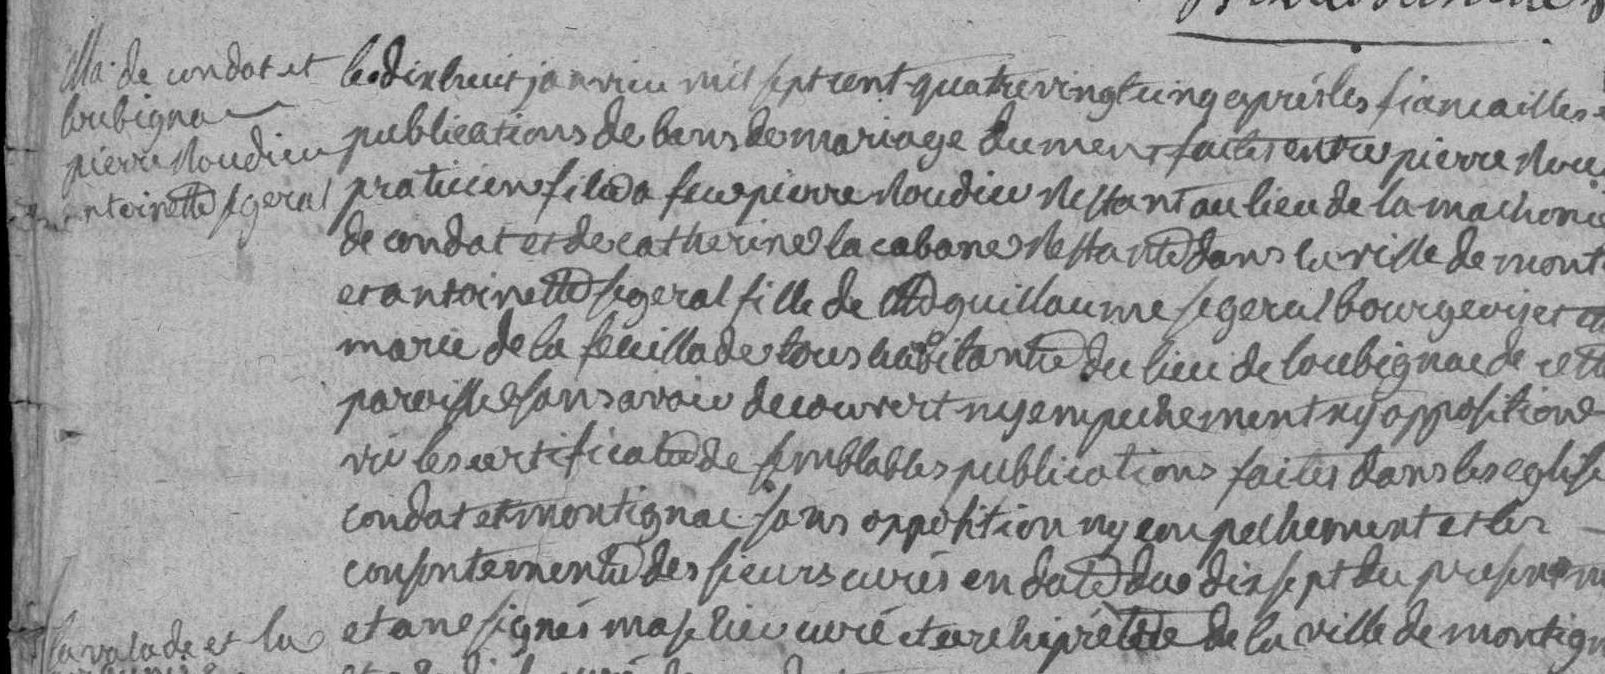 Ma. de condat et
loubignac
pierre Roudier
antoinette segeral
le dix huit janvier mil sept cent quatre vingt cinq apres les fiancailles
publications de bans de mariage dument faites entre pierre Rou
praticien fils a feu pierre Roudier Restant au lieu de la
de condat et de catherine lacabane Restante dans la ville de mont
et antoinette segeral fille de guillaume segeral bourgeois et
marie de la feuillade tous habitants du lieu de loubignac de cette
paroisse sans avoir decouvert ny empechement ny opposition
vu les certificats de semblables publications faites dans les eglise
condat et montignac sans opposition ny empechement et les
consentements des sieurs curés en date du dix sept du present m
et ane signés curé et archiprêtre de la ville de montign
lavalade et la